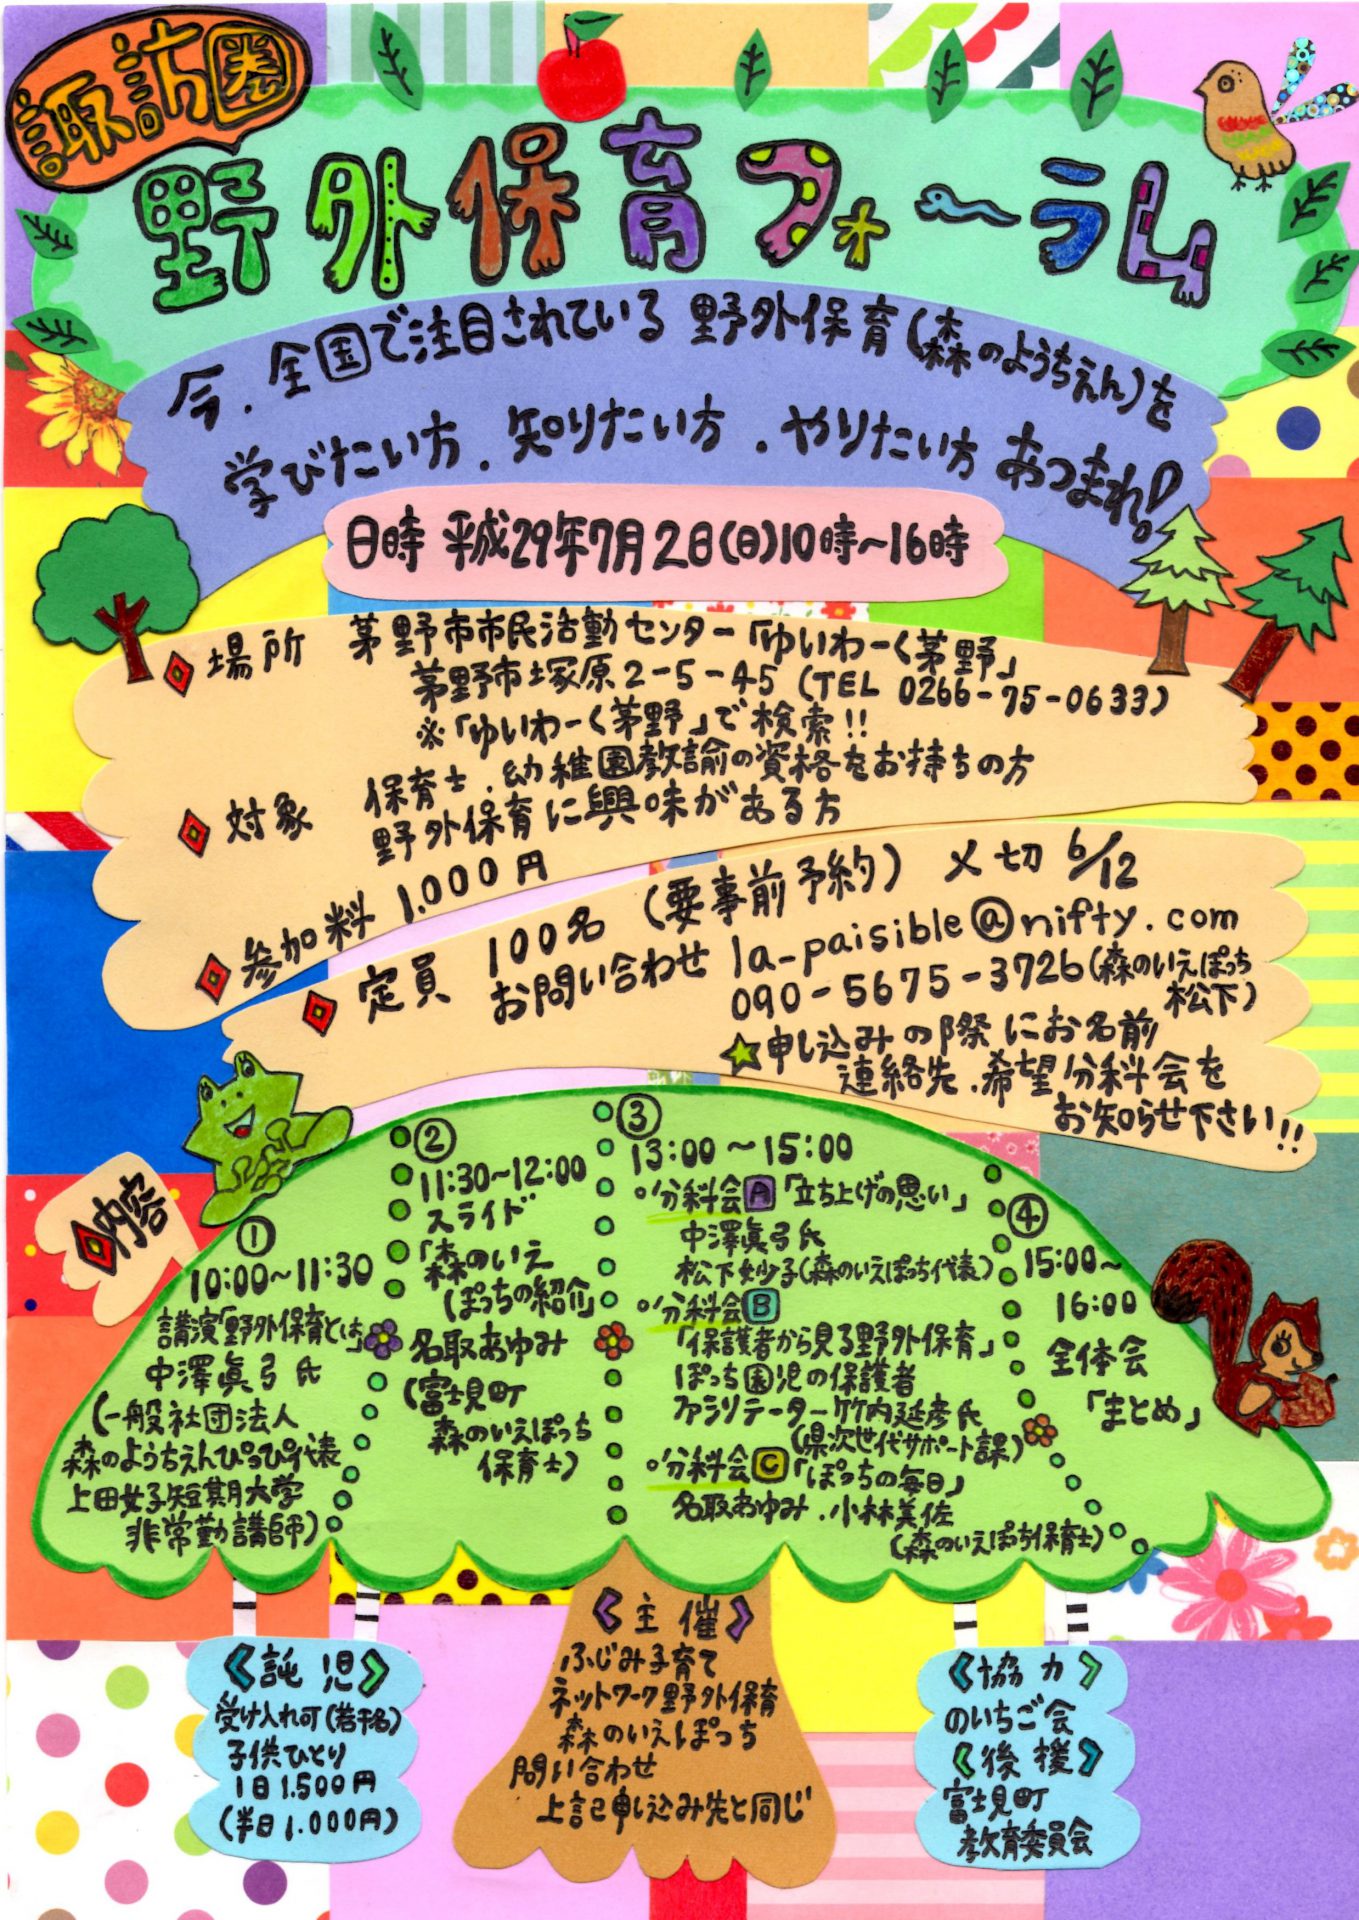 諏訪圏
野外保育フォーラム
今、全国で注目されている 野外保育(森のようちえん)を
学びたい方、知りたい方、やりたい方 あつまれ!
日時 平成29年7月2日(日)10時~16時
場所 茅野市市民活動センター「ゆいわーく茅野」
茅野市塚原2-5-45 (TEL 0266-75-0633)
※「ゆいわーく茅野」で検索!!
対象 保育士、幼稚園教諭の資格をお持ちの方
野外保育に興味がある方
参加料 1.000円
定員 100名 (要事前予約) 〆切 6/12
お問い合わせ la-paisible@nifty.com
090-5675-3726(森のいえぽっち
松下)
★申し込みの際にお名前
連絡先、希望分科会を
お知らせ下さい!!
内容
①
10:00~11:30
講演「野外保育とは」
中澤眞弓氏
(一般社団法人
森のようちえんぴっぴ代表
上田女子短期大学
非常勤講師)
②
11:30~12:00
スライド
「森のいえ
ぽっちの紹介」
名取あゆみ
(富士見町
森のいえぽっち
保育士)
③
13:00~15:00
○分科会A「立ち上げの思い」
中澤眞弓氏
松下妙子(森のいえぽっち代表)
○分科会B
「保護者から見る野外保育」
ぽっち園児の保護者
ファシリテーター竹内延彦氏
(県次世代サポート課)
○分科会C「ぽっちの毎日」
名取あゆみ、小林美佐
(森のいえぽっち保育士)
④
15:00~
16:00
全体会
「まとめ」
<託児>
受け入れ可(若干名)
子供ひとり
1日1.500円
(半日1.000円)
<主催>
ふじみ子育て
ネットワーク野外保育
森のいえぽっち
問い合わせ
上記申し込み先と同じ
<協力>
のいちご会
<後援>
富士見町
教育委員会